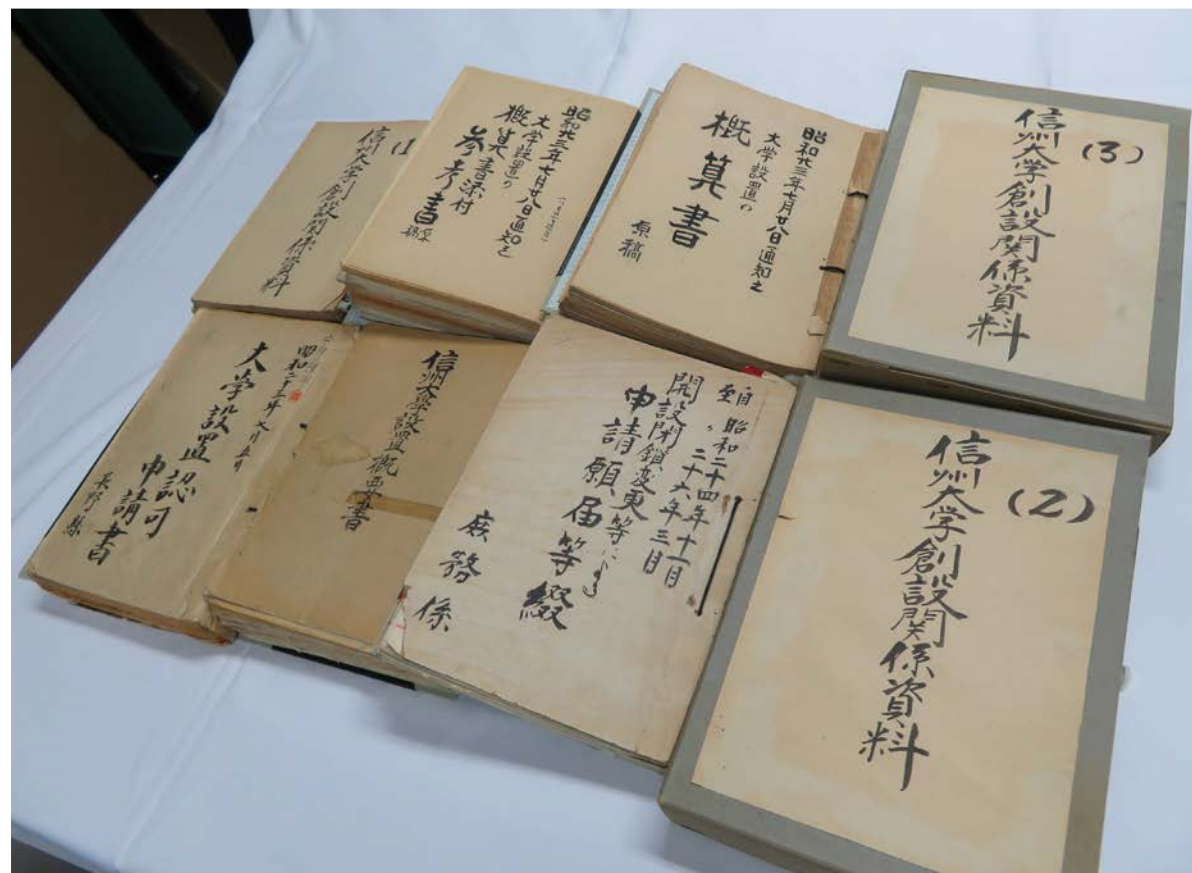 信州大学創設関係資料
(1)
昭和廿三年七月廿八日通知之
大学設置の
概算書添付
参考書
原稿
昭和廿三年七月廿八日通知之
大学設置の
概算書
原稿
(3)
信州大学創設関係資料
昭和二十三年七月
大学設置認可
申請書
長野縣
信州大学設置概要書
自昭和二十四年十一月
至〃二十六年三月
開設閉鎖変更等による
申請願届等綴
庶務係
(2)
信州大学創設関係資料